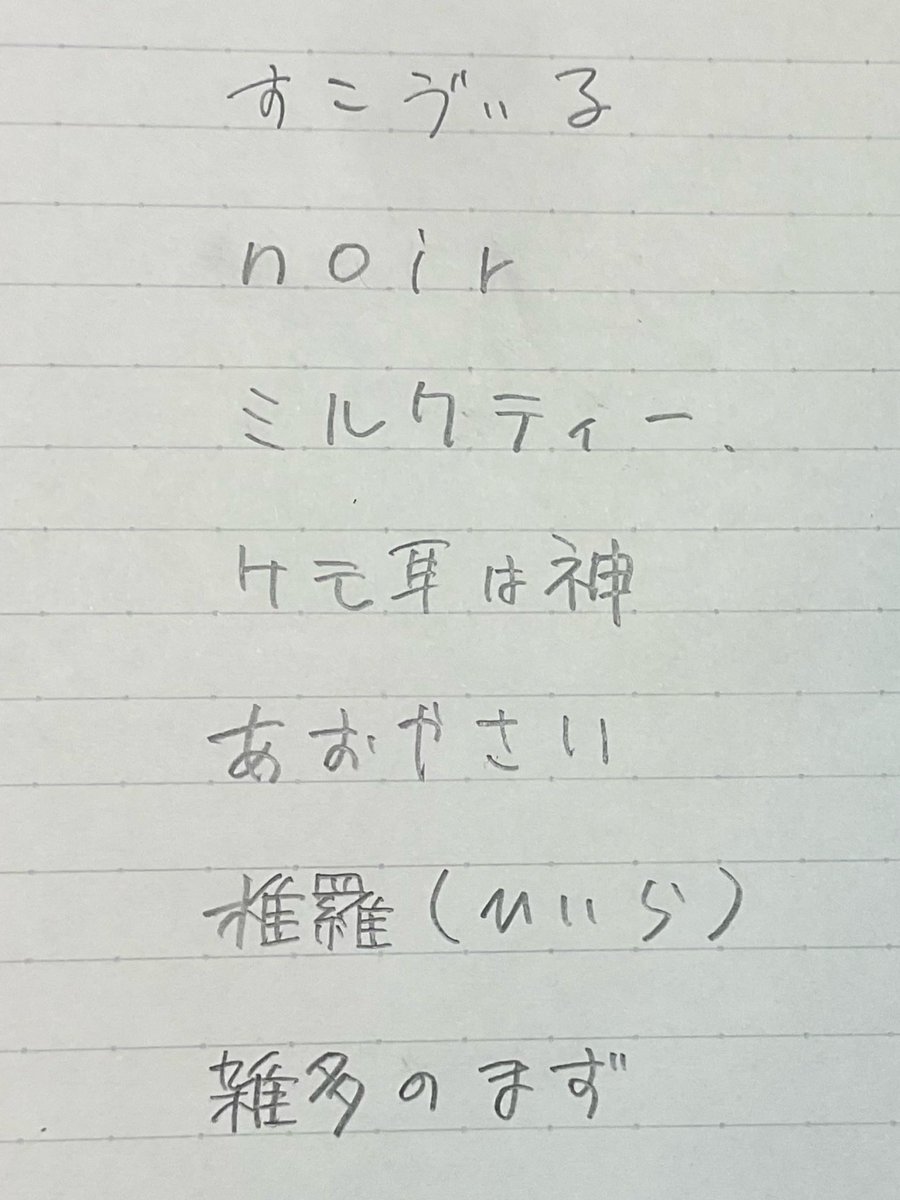 すこゔぃる
noir
ミルクティー.
ケモ耳は神
あおやさい
椎羅(ひいら)
雑多のまず